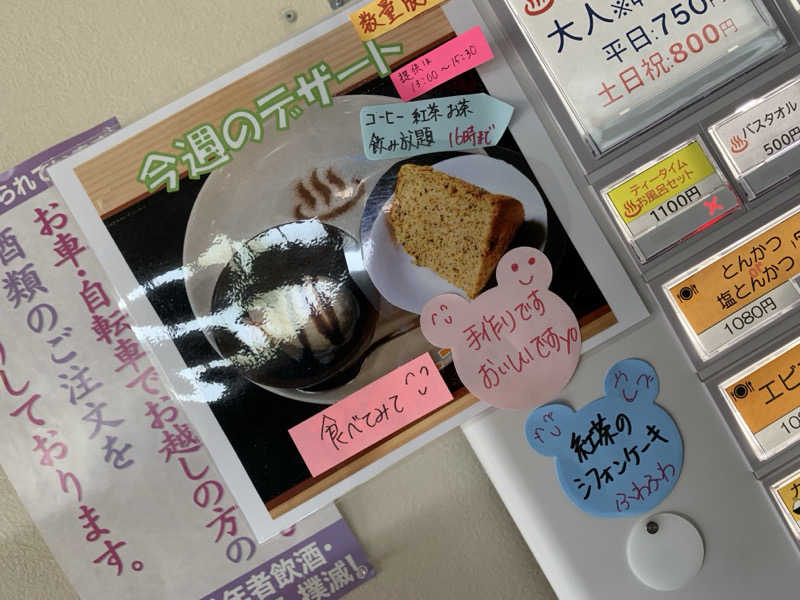 今週のデザート
数量
提供は
13:00～15:30
コーヒー 紅茶 お茶
飲み放題 16時まで
手作りです
おいしいですyo
食べてみて
紅茶の
シフォンケーキ
ふわふわ
大人※
平日:750円
土日祝:800円
バスタオル
500円
ティータイム
お風呂セット
1100円
とんかつ
or
塩とんかつ
1080円
エビ
お車・自転車でお越しの方の
酒類のご注文を
しております。
年者飲酒・
撲滅!